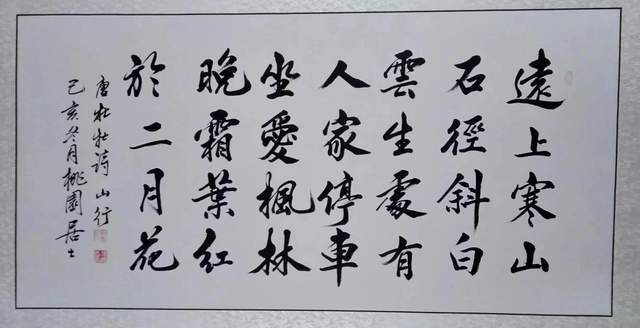 遠上寒山
石徑斜白
雲生處有
人家停車
坐愛楓林
晚霜葉紅
於二月花
唐杜牡詩山行
己亥冬月桃園居士